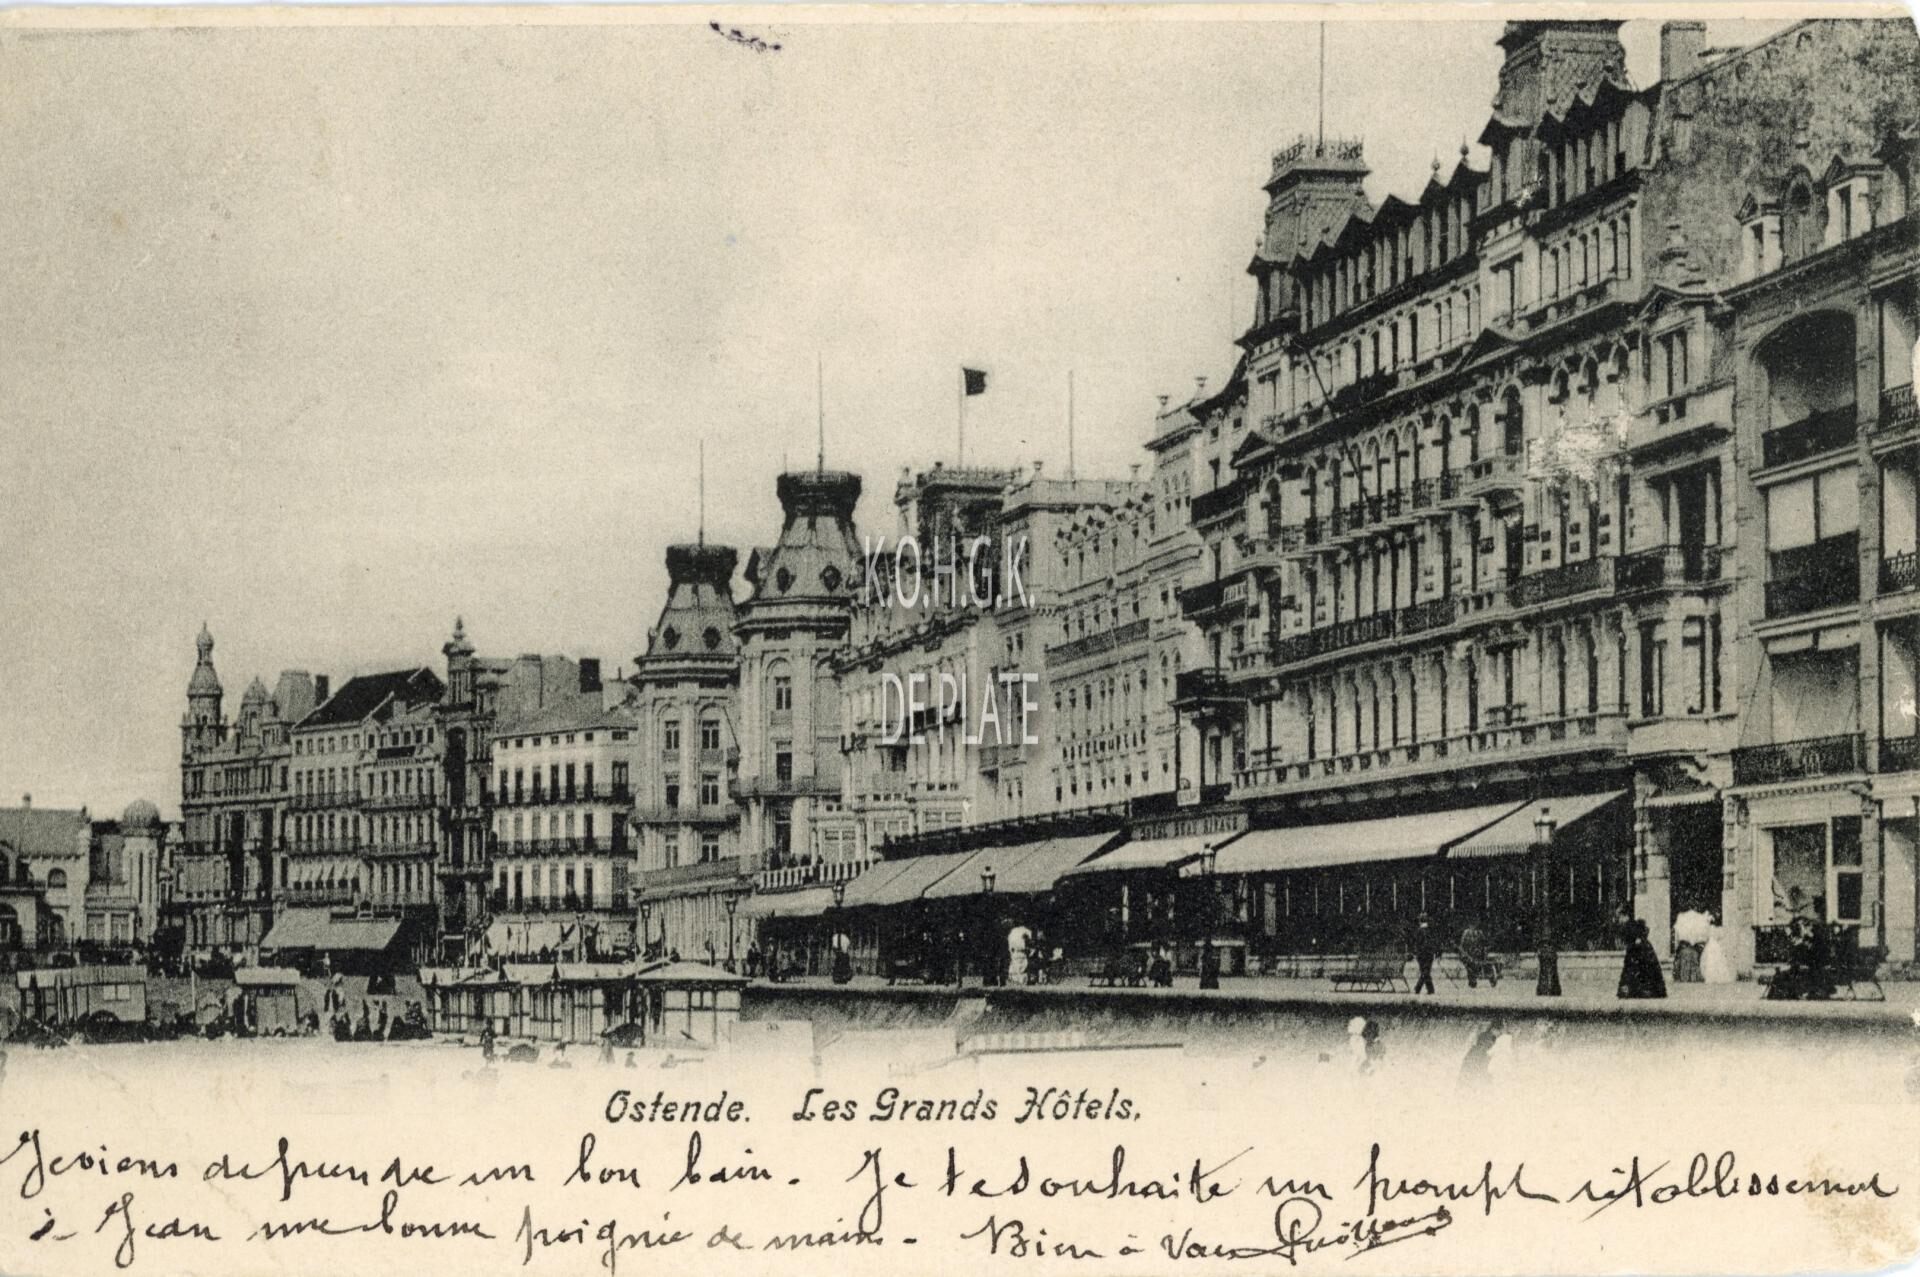 K.O.H.G.K.
DE PLATE
SPLENDID
HOTEL BEAU RIVAGE
Ostende. Les Grands Hôtels.
Je viens de prendre un bon bain. Je te souhaite un prompt rétablissement
à Jean une bonne poignée de main. Bien à vous